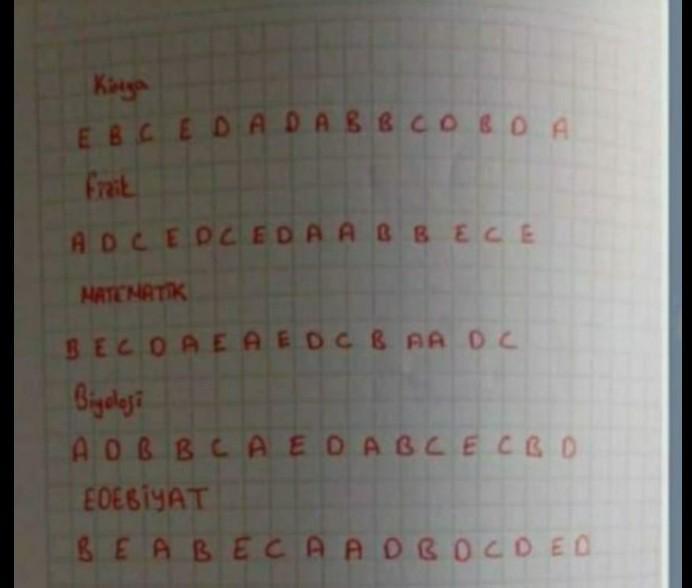 Kimya
E B C E D A D A B B C D B D A
Fizik
A D C E D C E D A A B B E C E
MATEMATİK
B E C D A E A E D C B A A D C
Biyoloji
A D B B C A E D A B C E C B D
EDEBİYAT
B E A B E C A A D B D C D E D